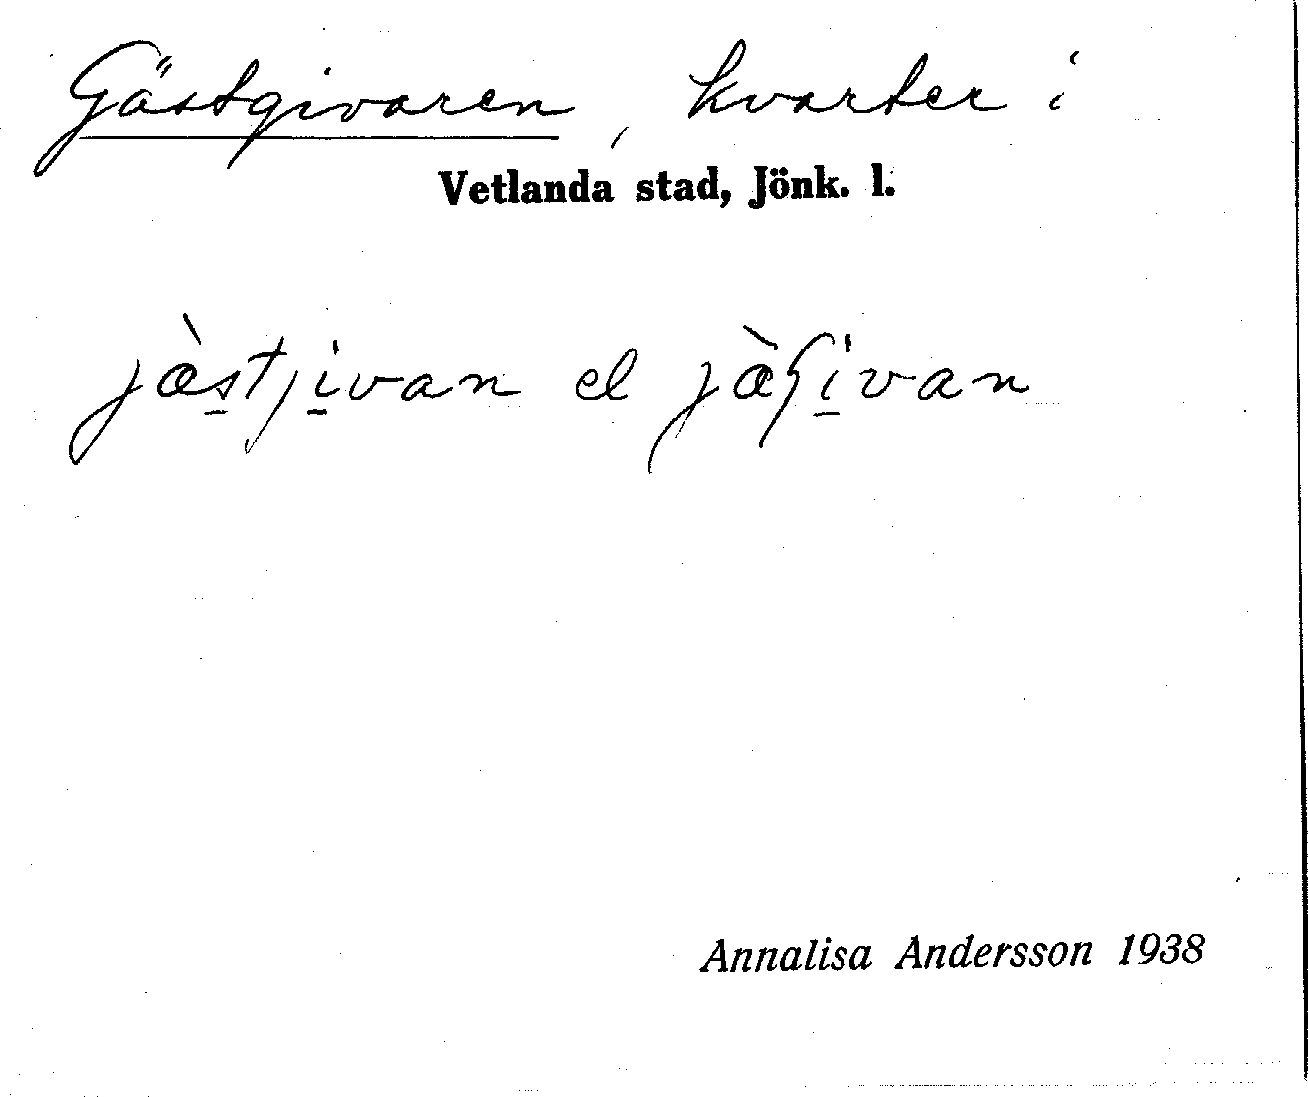 Gästgivaren, kvarter i
Vetlanda stad, Jönk. l.
jæ̀stjivan el jæ̀ʃivan
Annalisa Andersson 1938